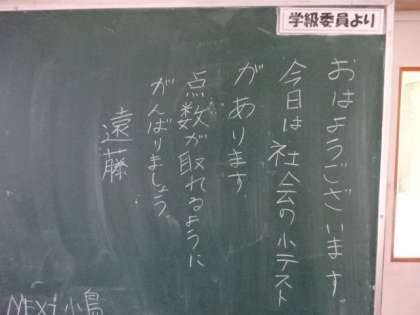 学級委員より
おはようございます。
今日は社会の小テスト
があります。
点数が取れるように
がんばりましょう。
遠藤
NEXT 小島